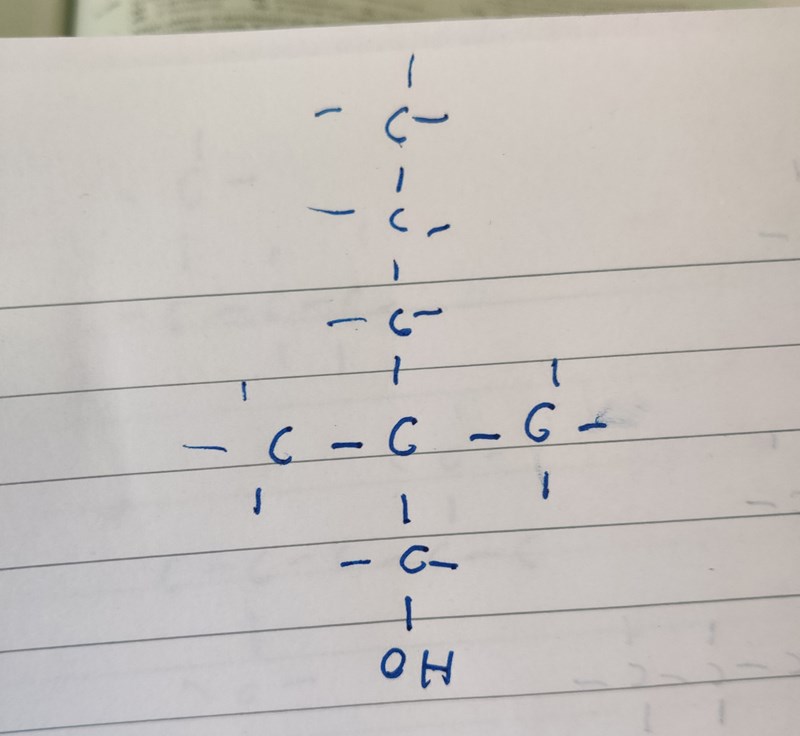 C
C
C
C - C - C
C
OH